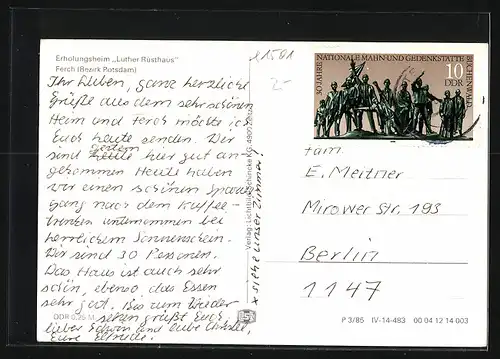 Erholungsheim „Luther Rüsthaus"
Ferch (Bezirk Potsdam)
x 1581
2-
30 JAHRE NATIONALE MAHN UND GEDENKSTÄTTE
BUCHENWALD
10
DDR
Ihr Lieben, ganz herzliche
Grüße aus dem sehr schönen
Heim und Ferch möchte ich
Euch heute senden. Wir
gestern
sind heute hier gut an-
gekommen Heute haben
wir einen schönen Spazier
gang nach dem Kaffee-
trinken unternommen bei
herrlichem Sonnenschein.
Wir sind 30 Personen.
Das Haus ist auch sehr
schön, ebenso das Essen
sehr gut. Bis zum Wieder
sehen grüßt Euch,
lieber Edwin und liebe
Eure
x siehe unser Zimmer!
Verlag: Lichtbild
KG, 4900
DDR 0,25 M
Fam.
E. Meitner
Mirower Str. 193
Berlin
1147
P 3/85 IV-14-483 00 04 12 14 003